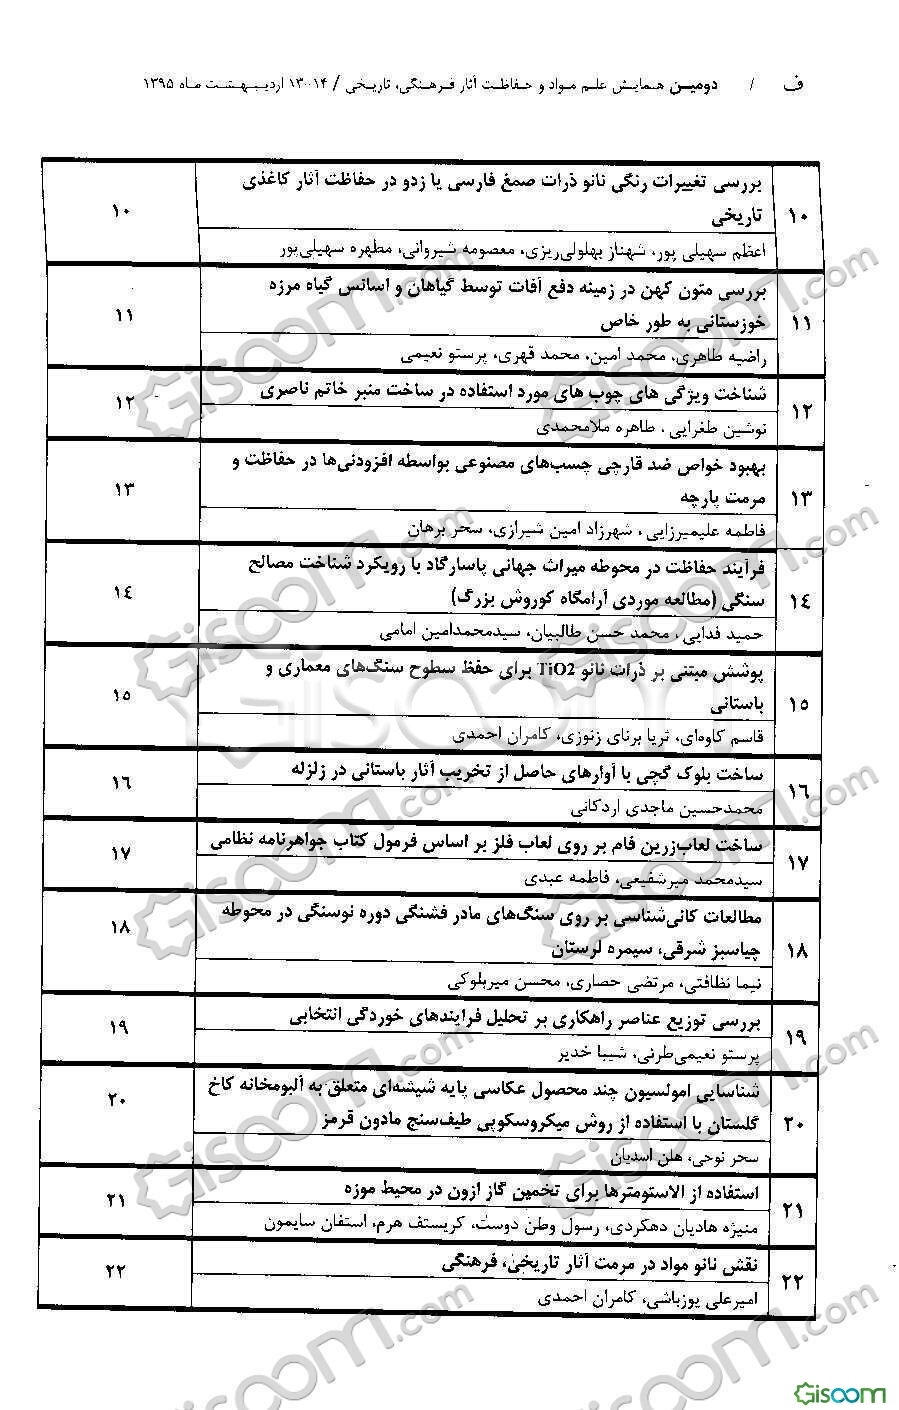 ف / دومین همایش علم مواد و حفاظت آثار فرهنگی، تاریخی / ۱۴-۱۳ اردیبهشت ماه ۱۳۹۵
۱۰
بررسی تغییرات رنگی نانو ذرات صمغ فارسی یا زدو در حفاظت آثار کاغذی
تاریخی
اعظم سهیلی پور، شهناز بهلولی‌ریزی، معصومه شیروانی، مطهره سهیلی‌پور
۱۰
۱۱
بررسی متون کهن در زمینه دفع آفات توسط گیاهان و اسانس گیاه مرزه
خوزستانی به طور خاص
راضیه طاهری، محمد امین، محمد قهری، پرستو نعیمی
۱۱
۱۲
شناخت ویژگی های چوب های مورد استفاده در ساخت منبر خاتم ناصری
نوشین طغرایی ، طاهره ملامحمدی
۱۲
۱۳
بهبود خواص ضد قارچی چسب‌های مصنوعی بواسطه افزودنی‌ها در حفاظت و
مرمت پارچه
فاطمه علیمیرزایی ، شهرزاد امین شیرازی، سحر برهان
۱۳
۱٤
فرآیند حفاظت در محوطه میراث جهانی پاسارگاد با رویکرد شناخت مصالح
سنگی (مطالعه موردی آرامگاه کوروش بزرگ)
حمید فدایی، محمد حسن طالبیان، سیدمحمدامین امامی
۱٤
۱۵
پوشش مبتنی بر ذرات نانو TiO2 برای حفظ سطوح سنگ‌های معماری و
باستانی
قاسم کاوه‌ای، ثریا برنای زنوزی، کامران احمدی
۱۵
۱٦
ساخت بلوک گچی با آوارهای حاصل از تخریب آثار باستانی در زلزله
محمدحسین ماجدی اردکانی
۱٦
۱۷
ساخت لعاب‌زرین فام بر روی لعاب فلز بر اساس فرمول کتاب جواهرنامه نظامی
سیدمحمد میرشفیعی، فاطمه عبدی
۱۷
۱۸
مطالعات کانی‌شناسی بر روی سنگ‌های مادر فشنگی دوره نوسنگی در محوطه
چیاسبز شرقی، سیمره لرستان
نیما نظافتی، مرتضی حصاری، محسن میربلوکی
۱۸
۱۹
بررسی توزیع عناصر راهکاری بر تحلیل فرایندهای خوردگی انتخابی
پرستو نعیمی‌طرنی، شیبا خدیر
۱۹
۲۰
شناسایی امولسیون چند محصول عکاسی پایه شیشه‌ای متعلق به آلبومخانه کاخ
گلستان با استفاده از روش میکروسکوپی طیف‌سنج مادون قرمز
سحر نوحی، هلن اسدیان
۲۰
۲۱
استفاده از الاستومترها برای تخمین گاز ازون در محیط موزه
منیژه هادیان دهکردی، رسول وطن دوست، کریستف هرم، استفان سایمون
۲۱
۲۲
نقش نانو مواد در مرمت آثار تاریخی، فرهنگی
امیرعلی یوزباشی، کامران احمدی
۲۲
Gisoom
Gisoom.com